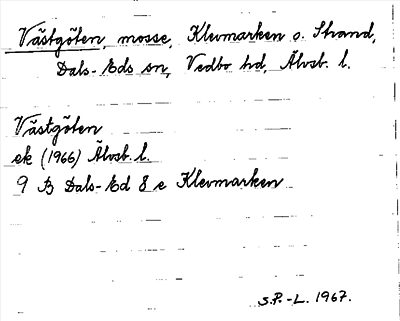 Västgöten, mosse, Klevmarken o. Strand,
Dals-Eds sn, Vedbo hd, Älvsb. l.
Västgöten
ek (1966) Älvsb. l.
9 B Dals-Ed 8 e Klevmarken
S.P.-L. 1967.